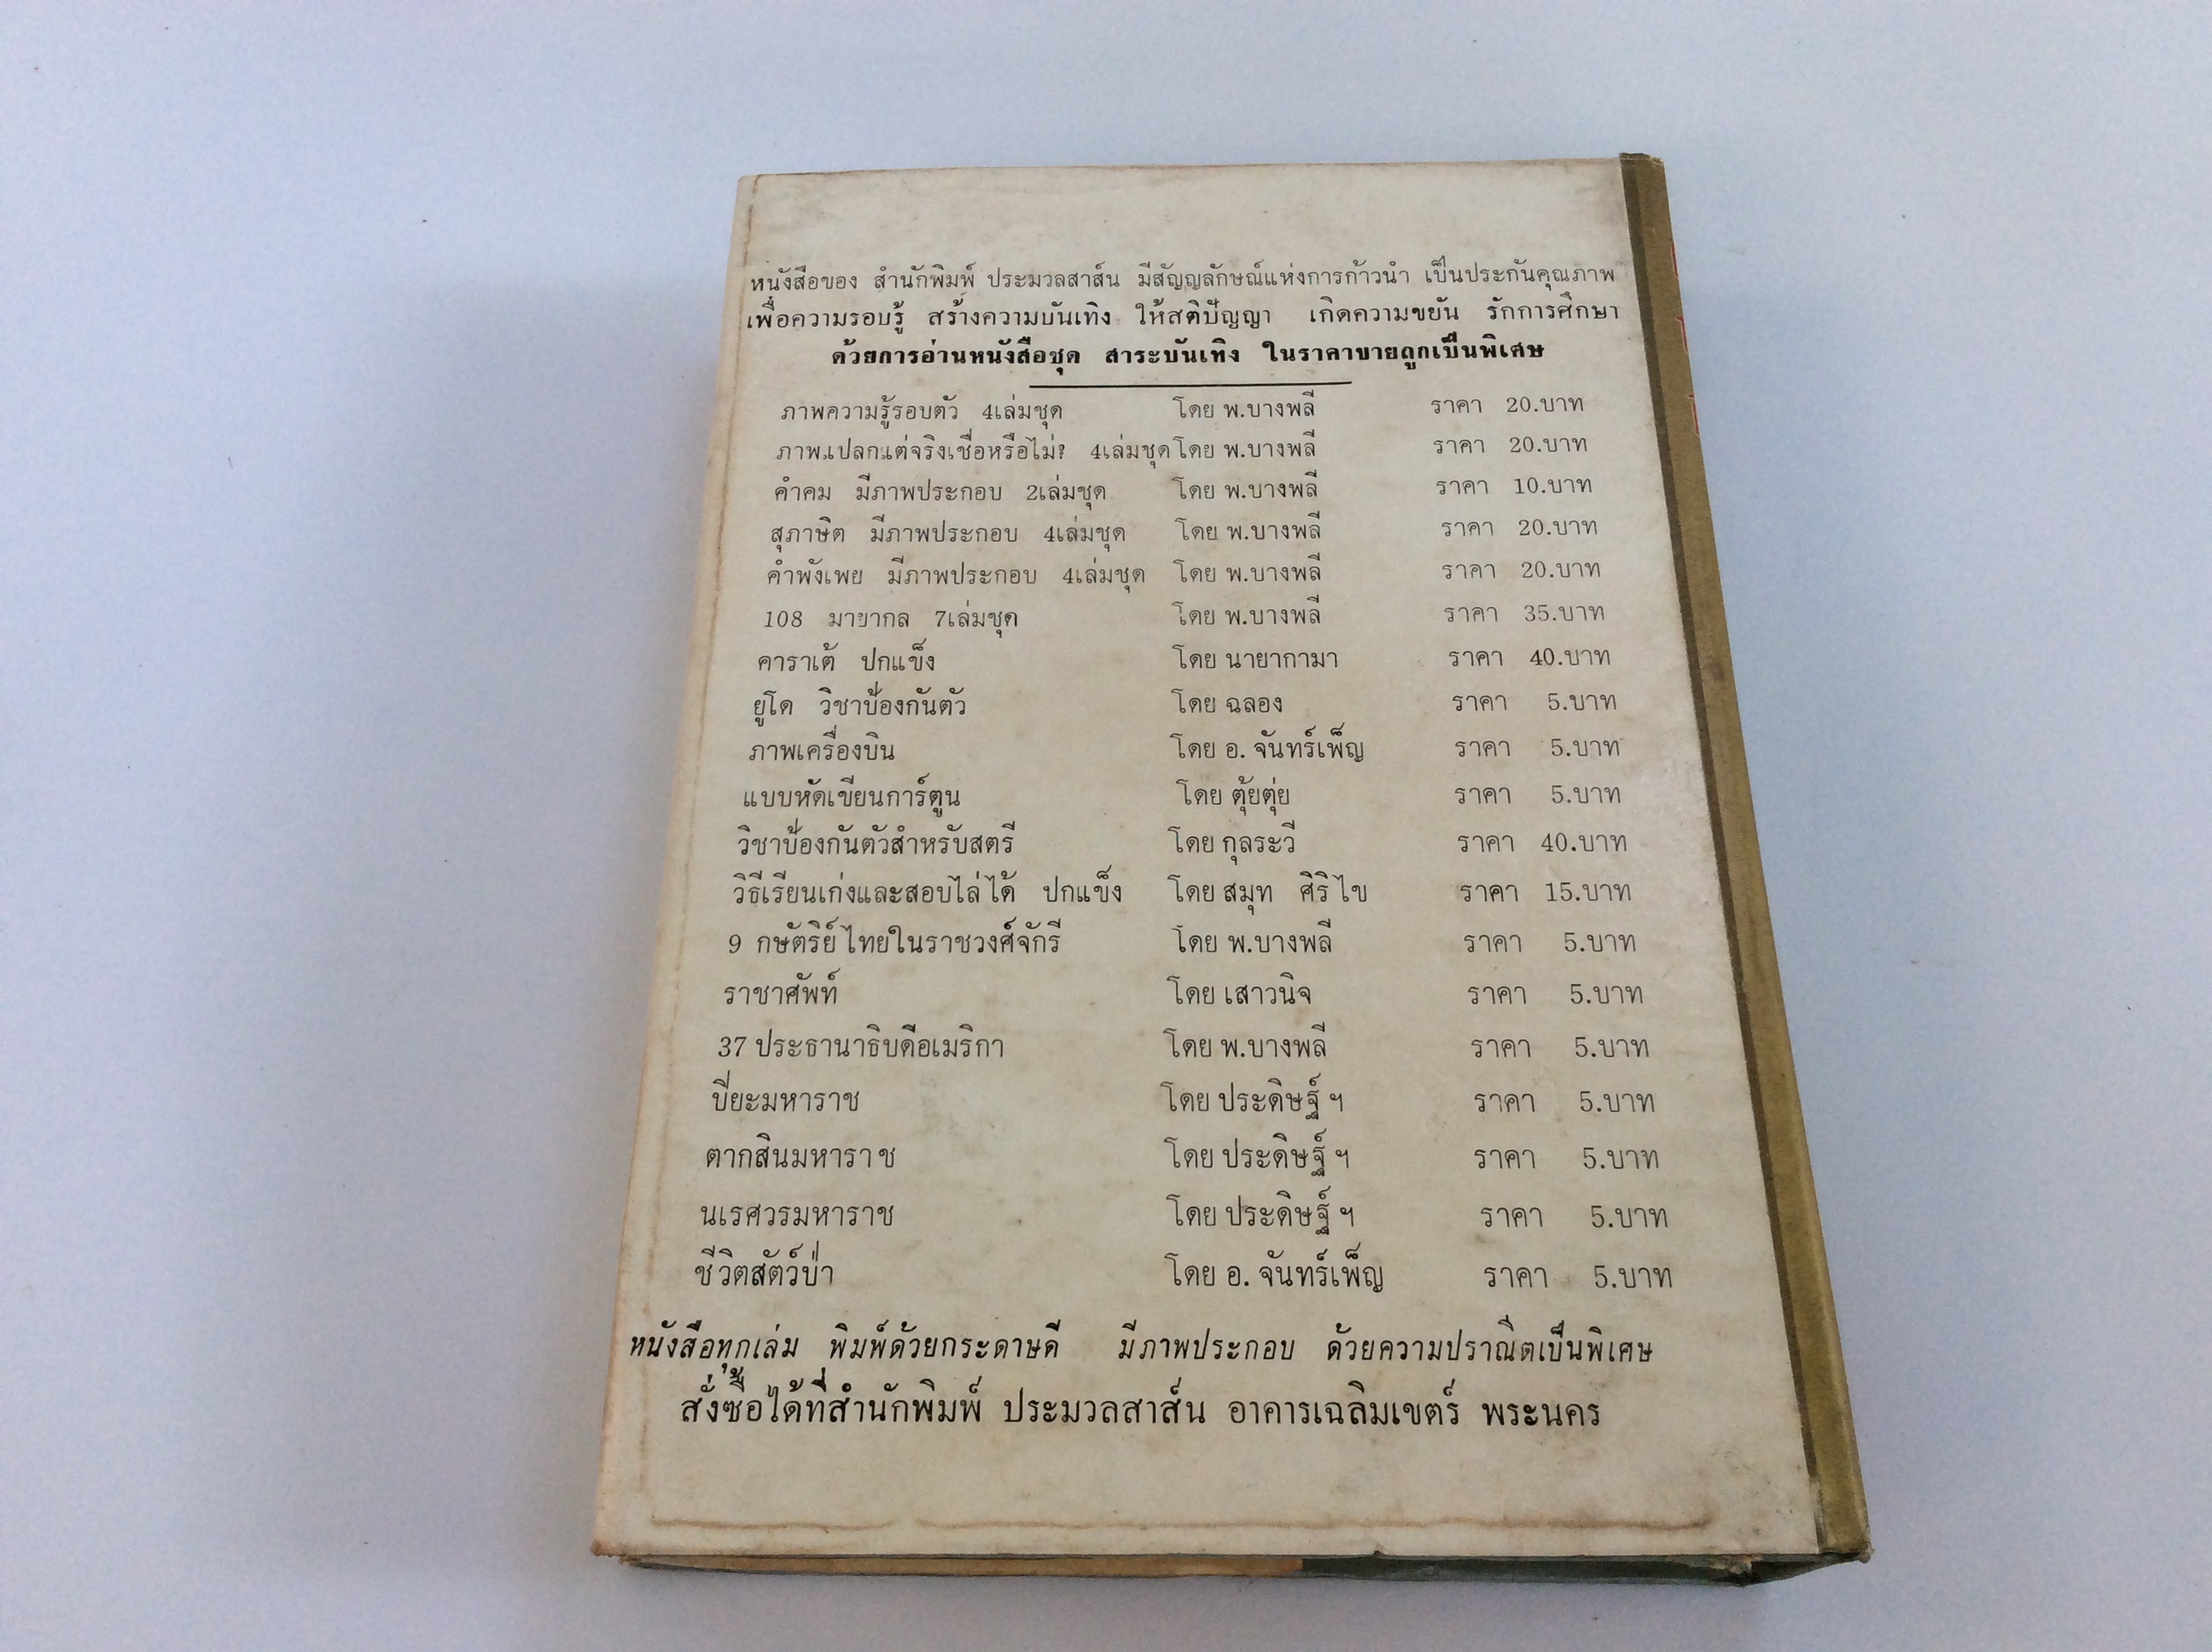 หนังสือของ สำนักพิมพ์ ประมวลสาส์น มีสัญญลักษณ์แห่งการก้าวนำ เป็นประกันคุณภาพ
เพื่อความรอบรู้ สร้างความบันเทิง ให้สติปัญญา เกิดความขยัน รักการศึกษา
ด้วยการอ่านหนังสือชุด สาระบันเทิง ในราคาขายถูกเป็นพิเศษ
ภาพความรู้รอบตัว 4เล่มชุด โดย พ.บางพลี ราคา 20.บาท
ภาพแปลกแต่จริงเชื่อหรือไม่? 4เล่มชุด โดย พ.บางพลี ราคา 20.บาท
คำคม มีภาพประกอบ 2เล่มชุด โดย พ.บางพลี ราคา 10.บาท
สุภาษิต มีภาพประกอบ 4เล่มชุด โดย พ.บางพลี ราคา 20.บาท
คำพังเพย มีภาพประกอบ 4เล่มชุด โดย พ.บางพลี ราคา 20.บาท
108 มายากล 7เล่มชุด โดย พ.บางพลี ราคา 35.บาท
คาราเต้ ปกแข็ง โดย นายากามา ราคา 40.บาท
ยูโด วิชาป้องกันตัว โดย ฉลอง ราคา 5.บาท
ภาพเครื่องบิน โดย อ. จันทร์เพ็ญ ราคา 5.บาท
แบบหัดเขียนการ์ตูน โดย ตุ้ยตุ่ย ราคา 5.บาท
วิชาป้องกันตัวสำหรับสตรี โดย กุลระวี ราคา 40.บาท
วิธีเรียนเก่งและสอบไล่ได้ ปกแข็ง โดย สมุท ศิริไข ราคา 15.บาท
9 กษัตริย์ไทยในราชวงศ์จักรี โดย พ.บางพลี ราคา 5.บาท
ราชาศัพท์ โดย เสาวนิจ ราคา 5.บาท
37 ประธานาธิบดีอเมริกา โดย พ.บางพลี ราคา 5.บาท
ปิยะมหาราช โดย ประดิษฐ์ ฯ ราคา 5.บาท
ตากสินมหาราช โดย ประดิษฐ์ ฯ ราคา 5.บาท
นเรศวรมหาราช โดย ประดิษฐ์ ฯ ราคา 5.บาท
ชีวิตสัตว์ป่า โดย อ. จันทร์เพ็ญ ราคา 5.บาท
หนังสือทุกเล่ม พิมพ์ด้วยกระดาษดี มีภาพประกอบ ด้วยความปราณีตเป็นพิเศษ
สั่งซื้อได้ที่สำนักพิมพ์ ประมวลสาส์น อาคารเฉลิมเขตร์ พระนคร